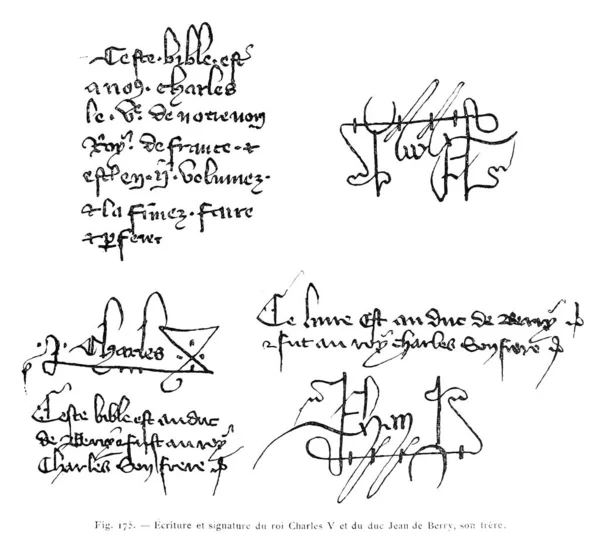 Ceste · bible · est
a noꝯ · charles
le · Ve · de notre nom
Roy · de france · et
est en · ii · volumez ·
et la fimez · faire
et ꝑfere
Charles
Ceste bible est au duc
de Berry et fust au roy
Charles son frere
Ce livre est au duc de Berry
et fut au roy charles son frere
Fig. 175. — Ecriture et signature du roi Charles V et du duc Jean de Berry, son frère.